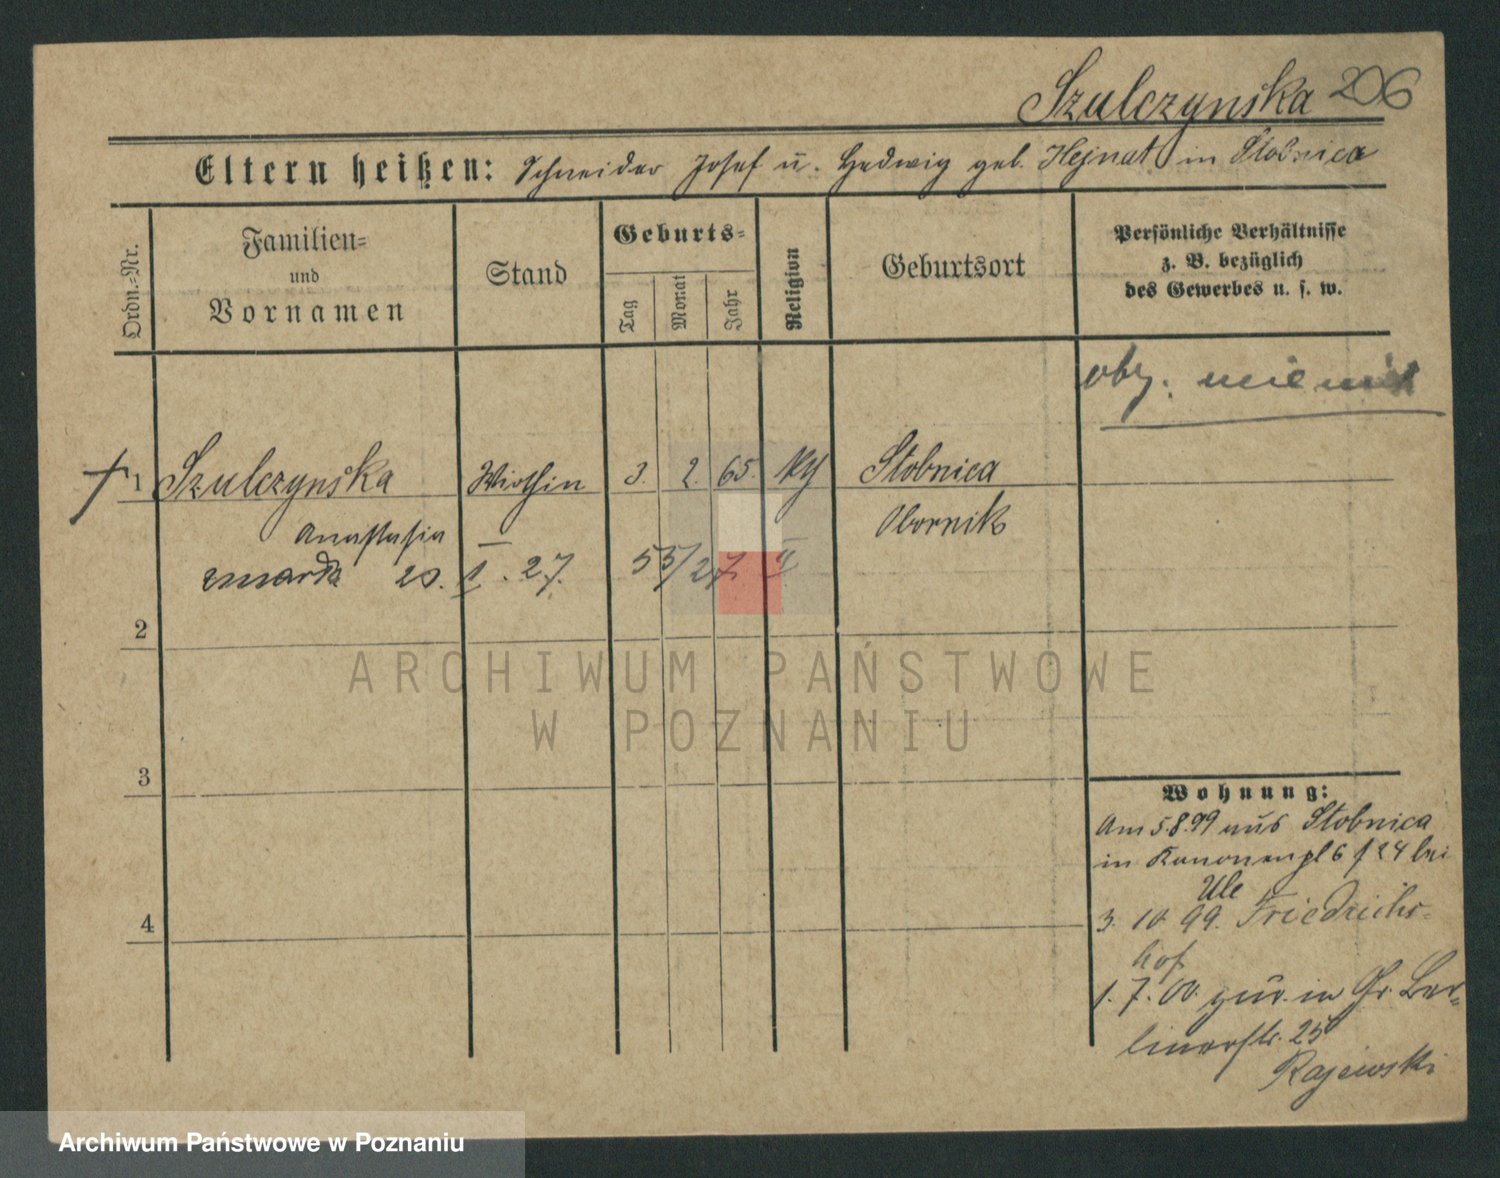 Szulczynska 206
Eltern heißen: Schneider Josef u. Hedwig geb. Hejnat in Stobnica
Ordn.=Nr.
Familien=
und
Vornamen
Stand
Geburts=
Tag
Monat
Jahr
Religion
Geburtsort
Persönliche Verhältnisse
z. B. bezüglich
des Gewerbes u. s. w.
† 1 Szulczynska Wirthin 3. 2. 65. Stobnica
Anastasia Obornik
zmarła 20. I. 27. 55/27 II
2
3
4
Wohnung:
Am 5.8.99 aus Stobnica
in Kanonenpl 6 f 24 bei
Ule
3. 10 99. Friedrichs-
hof
1. 7. 00. zur. in Gr. Ber-
linerstr. 25
Rajewski
ARCHIWUM PAŃSTWOWE
W POZNANIU
Archiwum Państwowe w Poznaniu